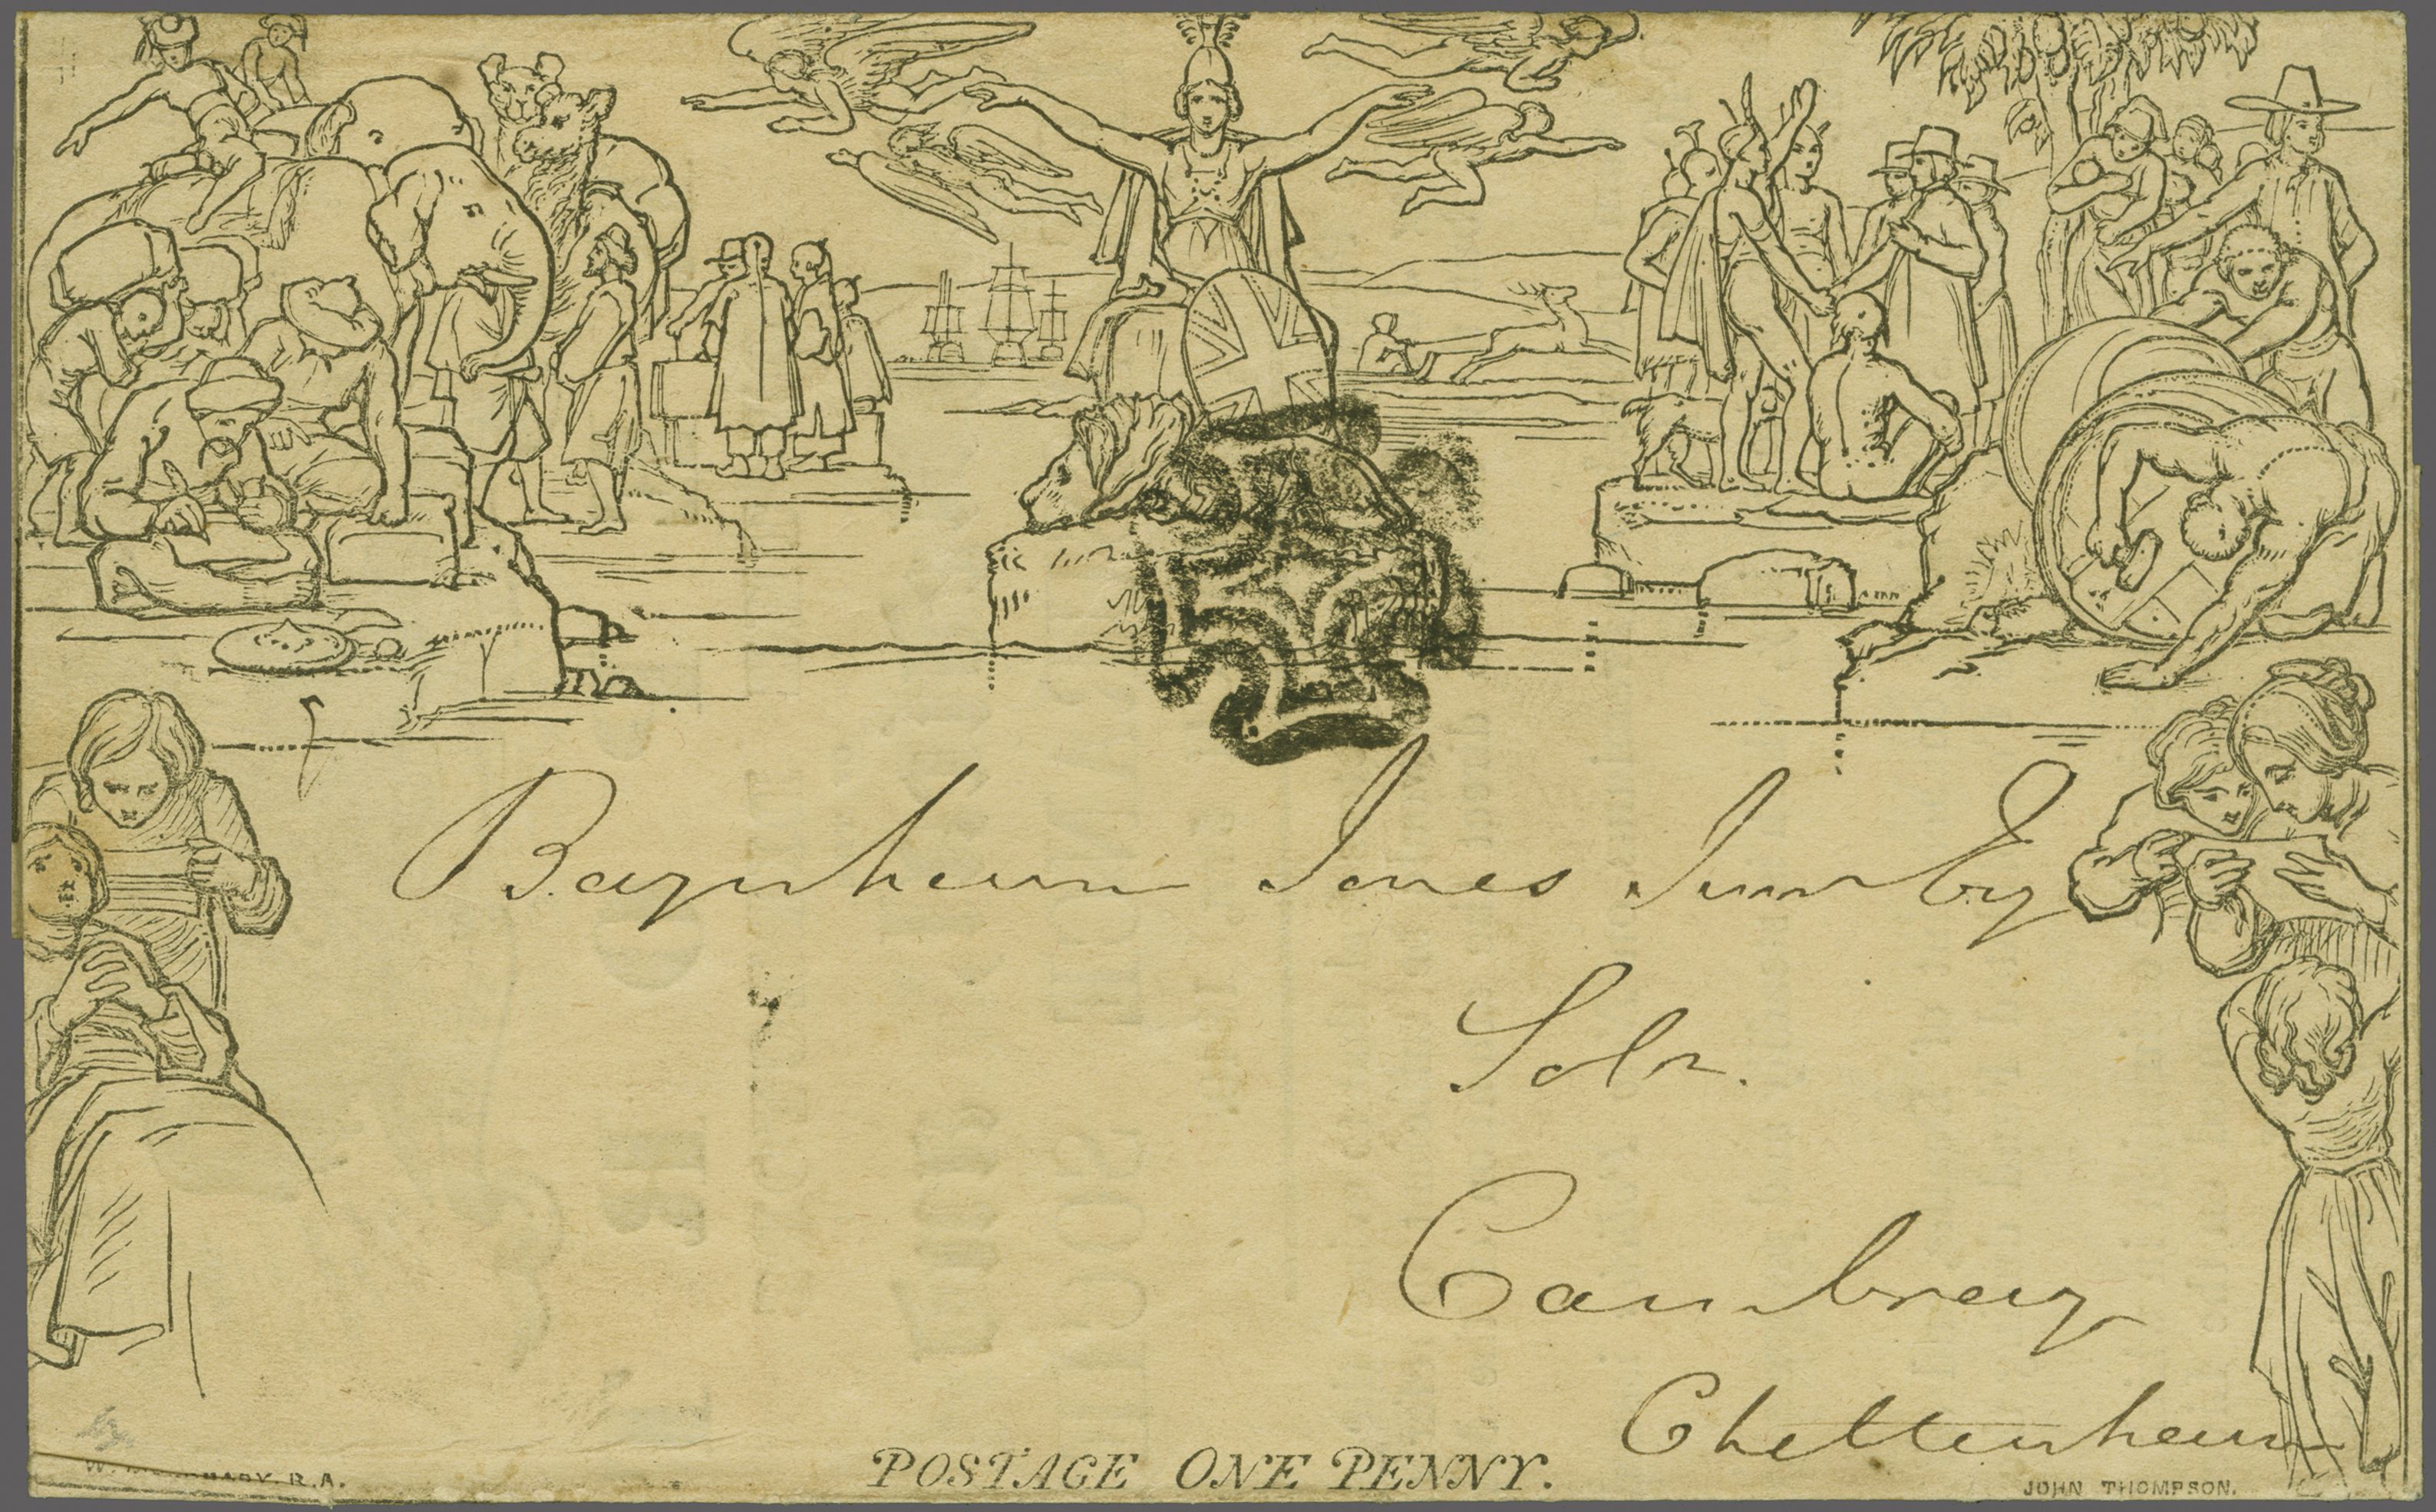 Baynham Jones Junr Esq
Solr.
Cambray
Cheltenham
POSTAGE ONE PENNY.
W. R.A.
JOHN THOMPSON.